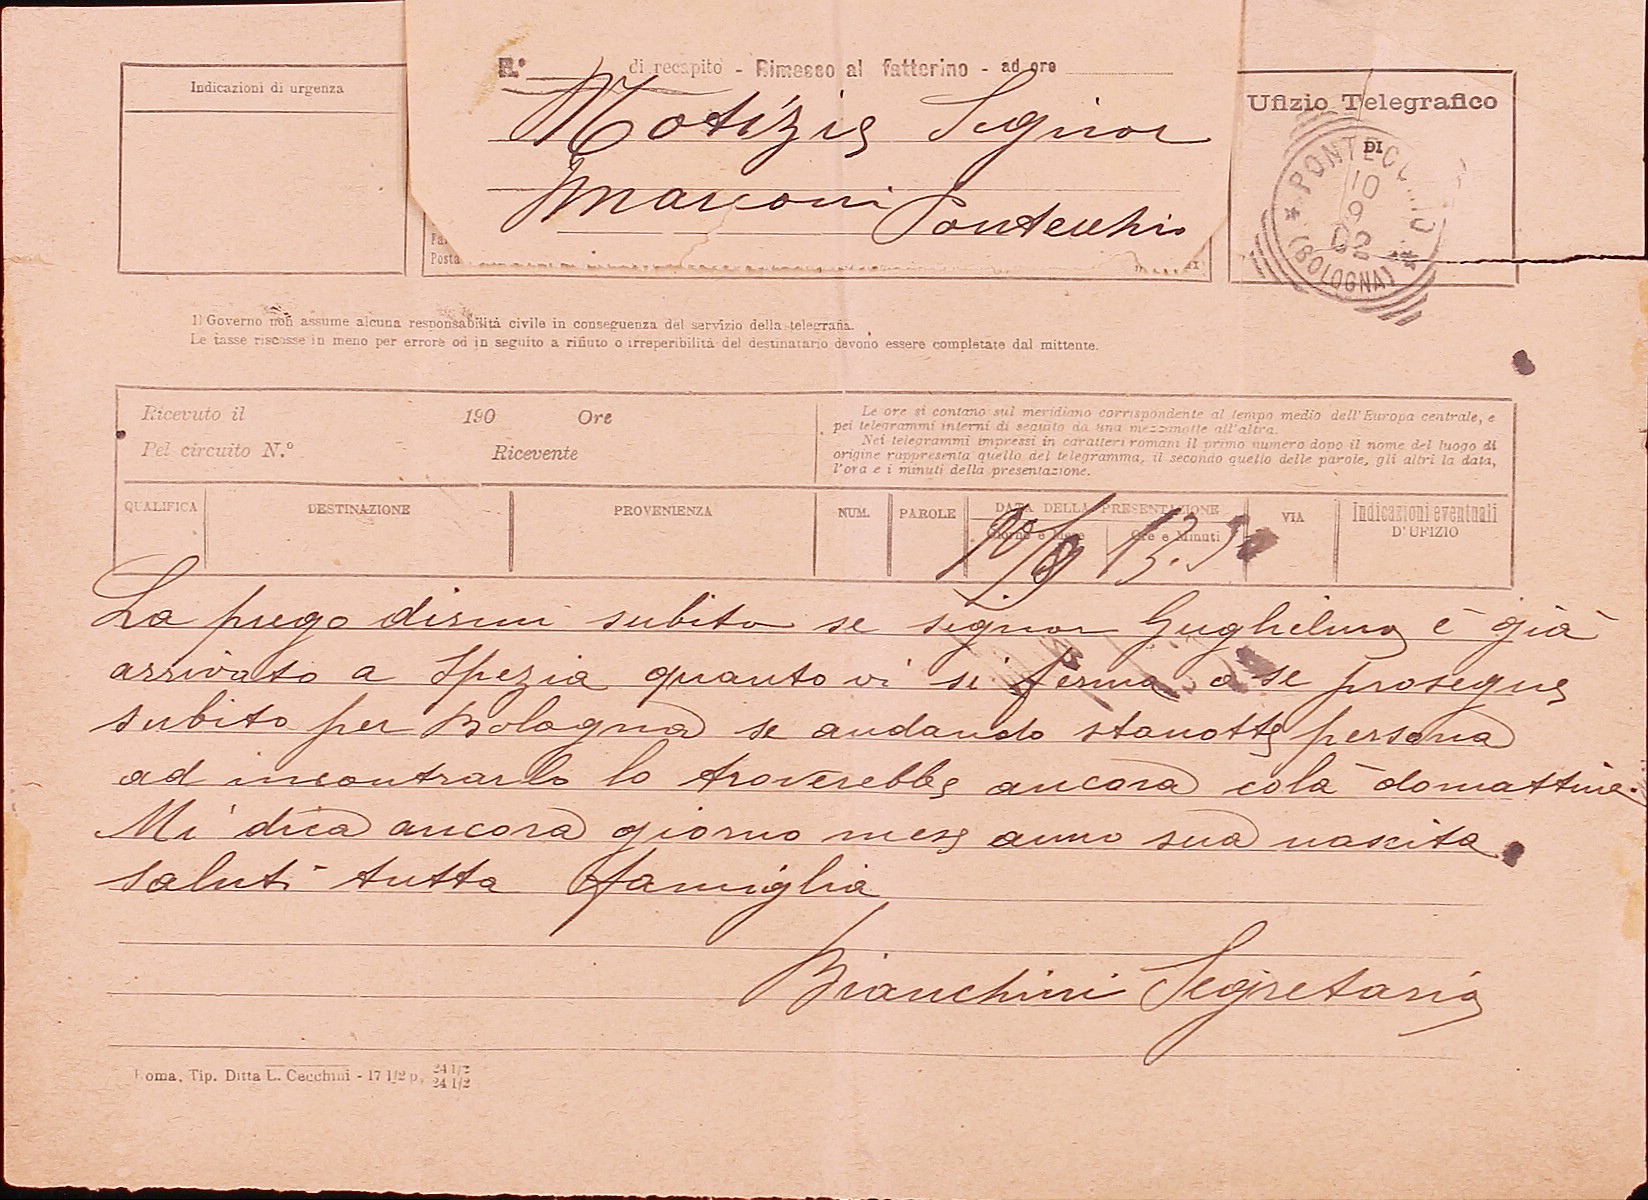 N.° di recapito - Rimesso al fattorino - ad ore
Indicazioni di urgenza
Notizie Signor
Marconi Pontecchio
Ufizio Telegrafico
DI
PONTECCHIO
10
9
02
(BOLOGNA)
Posta
Il Governo non assume alcuna responsabilità civile in conseguenza del servizio della telegrafia.
Le tasse riscosse in meno per errore od in seguito a rifiuto o irreperibilità del destinatario devono essere completate dal mittente.
Ricevuto il 190 Ore
Pel circuito N.° Ricevente
Le ore si contano sul meridiano corrispondente al tempo medio dell'Europa centrale, e
pei telegrammi interni di seguito da una mezzanotte all'altra.
Nei telegrammi impressi in caratteri romani il primo numero dopo il nome del luogo di
origine rappresenta quello del telegramma, il secondo quello delle parole, gli altri la data,
l'ora e i minuti della presentazione.
QUALIFICA DESTINAZIONE PROVENIENZA NUM. PAROLE DATA DELLA PRESENTAZIONE VIA Indicazioni eventuali
Giorno e Mese Ore e Minuti D'UFIZIO
10/9
La prego dirmi subito se signor Guglielmo è già
arrivato a Spezia quanto vi si ferma o se prosegue
subito per Bologna se andando stanotte persona
ad incontrarlo lo troverebbe ancora colà domattina.
Mi dica ancora giorno mese anno sua nascita
saluti tutta famiglia
Bianchini Segretario
Roma, Tip. Ditta L. Cecchini - 17 1/2 p. 24 1/2
24 1/2